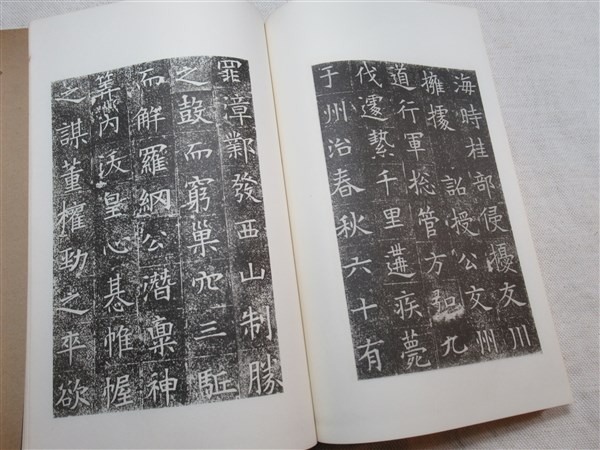 海時桂部侵擾友川
擁據詔授公交州
道行軍惣管方弘九
伐遽縶千里遘疾薨
于州治春秋六十有
罪漳鄴發西山制勝
之鼓而窮巢穴三駈
而解羅網公潛稟神
筭內沃皇心惎帷幄
之謀董權勁之卒欲